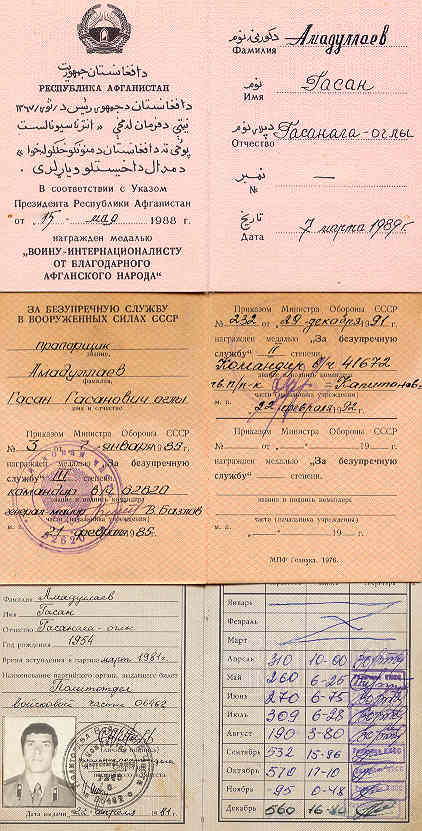 د افغانستان جمهوریت
РЕСПУБЛИКА АФГАНИСТАН
В соответствии с Указом
Президента Республики Афганистан
от 15 - мая 1988 г.
награжден медалью
"ВОИНУ-ИНТЕРНАЦИОНАЛИСТУ
ОТ БЛАГОДАРНОГО
АФГАНСКОГО НАРОДА"
Фамилия Амадуллаев
نوم
Имя Гасан
Отчество Гасанага-оглы
نمبر
№ —
تاریخ
Дата 7 марта 1989г.
ЗА БЕЗУПРЕЧНУЮ СЛУЖБУ
В ВООРУЖЕННЫХ СИЛАХ СССР
прапорщик
звание,
Амадуллаев
фамилия,
Гасан Гасанович оглы
имя и отчество
Приказом Министра Обороны СССР
№ 3 января 1985 г.
награжден медалью „За безупречную
службу" III степени.
командир в/ч 62620
звание и подпись командира
генерал-майор В. Базлов
части (начальника учреждения)
м. п. 21 февраля 1985 г.
Приказом Министра Обороны СССР
№ 232 от „29" декабря 1991 г.
награжден медалью „За безупречную
службу" II степени.
Командир в/ч 41672
звание и подпись командира
гв. п/п-к Капитонов
части (начальника учреждения)
м. п. 22 февраля 92 г.
Приказом Министра Обороны СССР
№ от 19 г.
награжден медалью „За безупречную
службу" степени.
звание и подпись командира
части (начальника учреждения)
м. п. 19 г.
МПФ Гознака. 1976.
Фамилия Амадуллаев
Имя Гасан
Отчество Гасанага-оглы
Год рождения 1954
Время вступления в партию март 1981г.
Наименование партийного органа, выдавшего билет
Политотдел
войсковой части 06462
(личная подпись)
Дата выдачи апреля 1981 г.
Январь
Февраль
Март
Апрель 310 10-00
Май 260 6-26
Июнь 270 6-75
Июль 309 6-28
Август 190 3-80
Сентябрь 532 15-96
Октябрь 570 17-10
Ноябрь 95 0-48
Декабрь 560